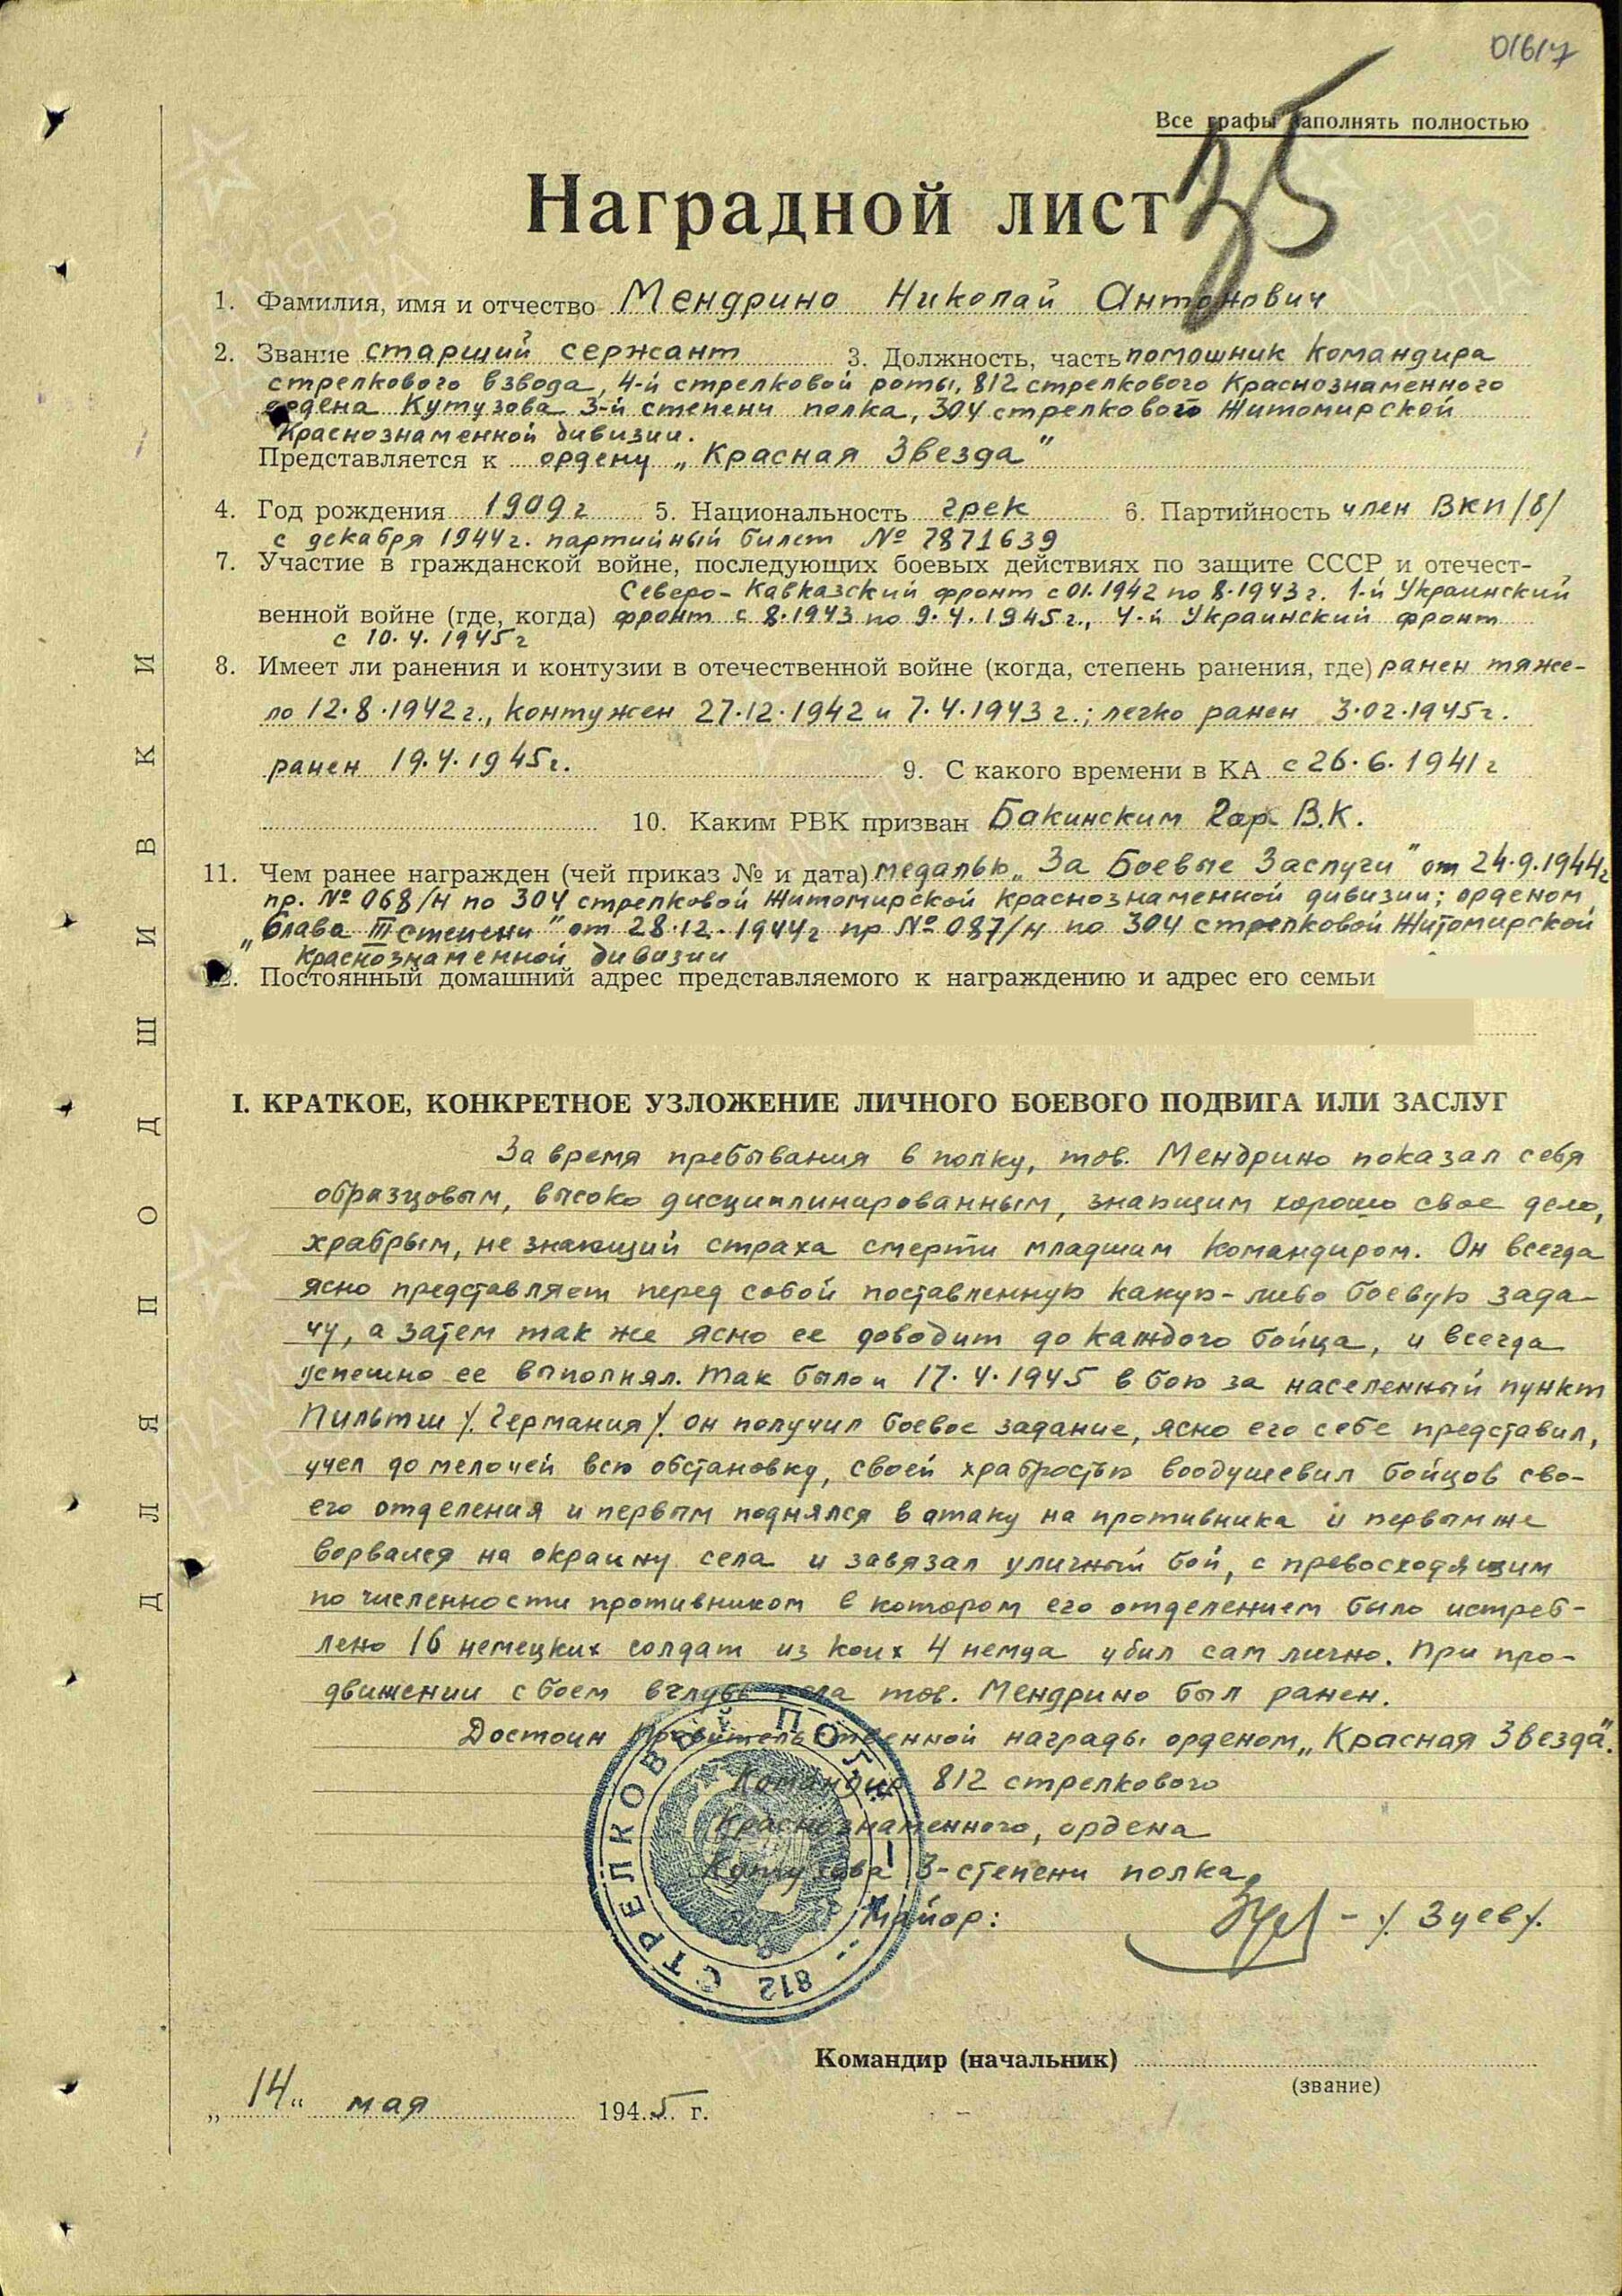 01617
35
Все графы заполнять полностью
Наградной лист
1. Фамилия, имя и отчество Мендрино Николай Антонович
2. Звание старший сержант 3. Должность, часть помошник командира
стрелкового взвода, 4-й стрелковой роты, 812 стрелкового Краснознаменного
ордена Кутузова 3-й степени полка, 304 стрелковой Житомирской
Краснознаменной дивизии.
Представляется к ордену „Красная Звезда"
4. Год рождения 1909 г 5. Национальность грек 6. Партийность член ВКП/б/
с декабря 1944 г. партийный билет № 7871639
7. Участие в гражданской войне, последующих боевых действиях по защите СССР и отечест-
Северо-Кавказский фронт с 01.1942 по 8.1943 г. 1-й Украинский
венной войне (где, когда) фронт с 8.1943 по 9.4.1945 г., 4-й Украинский фронт
с 10.4.1945 г
8. Имеет ли ранения и контузии в отечественной войне (когда, степень ранения, где) ранен тяже-
ло 12.8.1942 г., контужен 27.12.1942 и 7.4.1943 г.; легко ранен 3.02.1945 г.
ранен 19.4.1945 г. 9. С какого времени в КА с 26.6.1941 г
10. Каким РВК призван Бакинским Гор. В.К.
11. Чем ранее награжден (чей приказ № и дата) медалью „За Боевые Заслуги" от 24.9.1944 г
пр. № 068/н по 304 стрелковой Житомирской Краснознаменной дивизии; орденом
„Слава III степени" от 28.12.1944 г пр № 087/н по 304 стрелковой Житомирской
Краснознаменной дивизии
12. Постоянный домашний адрес представляемого к награждению и адрес его семьи
I. КРАТКОЕ, КОНКРЕТНОЕ УЗЛОЖЕНИЕ ЛИЧНОГО БОЕВОГО ПОДВИГА ИЛИ ЗАСЛУГ
За время пребывания в полку, тов. Мендрино показал себя
образцовым, высоко дисциплинированным, знающим хорошо свое дело,
храбрым, не знающий страха смерти младшим командиром. Он всегда
ясно представляет перед собой поставленную какую-либо боевую зада-
чу, а затем так же ясно ее доводит до каждого бойца, и всегда
успешно ее выполнял. Так было и 17.4.1945 в бою за населенный пункт
Пильтш /Германия/. он получил боевое задание, ясно его себе представил,
учел до мелочей всю обстановку, своей храбростью воодушевил бойцов сво-
его отделения и первым поднялся в атаку на противника и первым же
ворвался на окраину села и завязал уличный бой, с превосходящим
по численности противником в котором его отделением было истреб-
лено 16 немецких солдат из коих 4 немца убил сам лично. При про-
движении с боем вглубь села тов. Мендрино был ранен.
Достоин Правительственной награды орденом „Красная Звезда".
Командир 812 стрелкового
Краснознаменного, ордена
Кутузова 3-степени полка
Майор: - /Зуев/.
812 СТРЕЛКОВЫЙ ПОЛК
Командир (начальник)
(звание)
„14" мая 1945 г.
ДЛЯ ПОДШИВКИ
ПАМЯТЬ НАРОДА